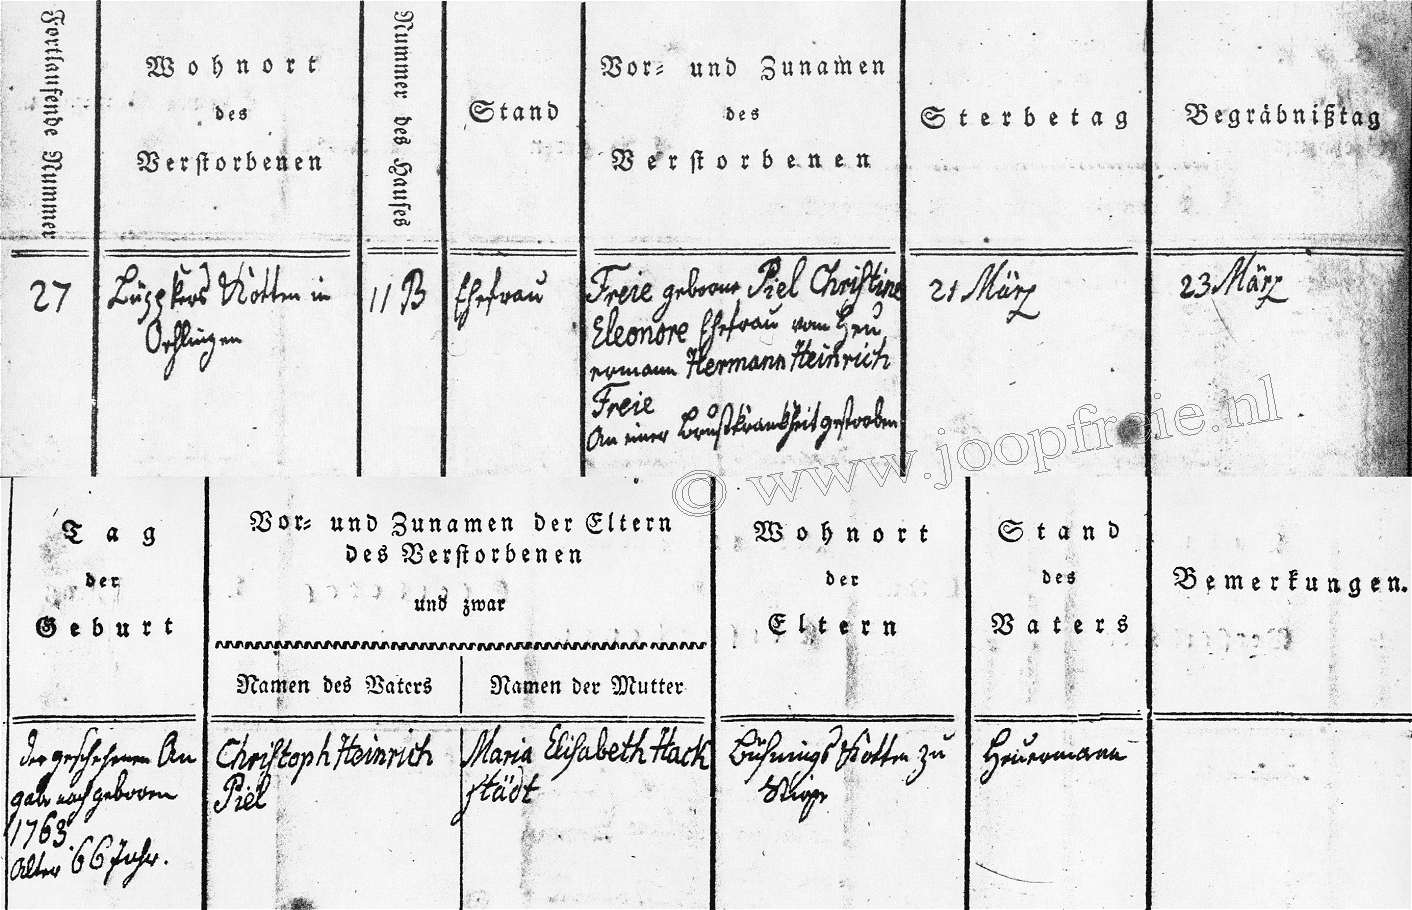 Fortlaufende Nummer
Wohnort
des
Verstorbenen
Nummer des Hauses
Stand
Vor- und Zunamen
des
Verstorbenen
Sterbetag
Begräbnißtag
27
Kotten in
Oehlingen
11 B
Ehefrau
Freie geborne Piel Christine
Eleonore Ehefrau vom Heu
ermann Hermann Heinrich
Freie
An einer Brustkrankheit gestorben
21 März
23 März
© www.joopfreie.nl
Tag
der
Geburt
Vor- und Zunamen der Eltern
des Verstorbenen
und zwar
Namen des Vaters
Namen der Mutter
Wohnort
der
Eltern
Stand
des
Vaters
Bemerkungen.
der geschehenen An
gabe nach geboren
1763.
Alter 66 Jahr.
Christoph Heinrich
Piel
Maria Elisabeth Hack
städt
Kotten zu
Heuermann